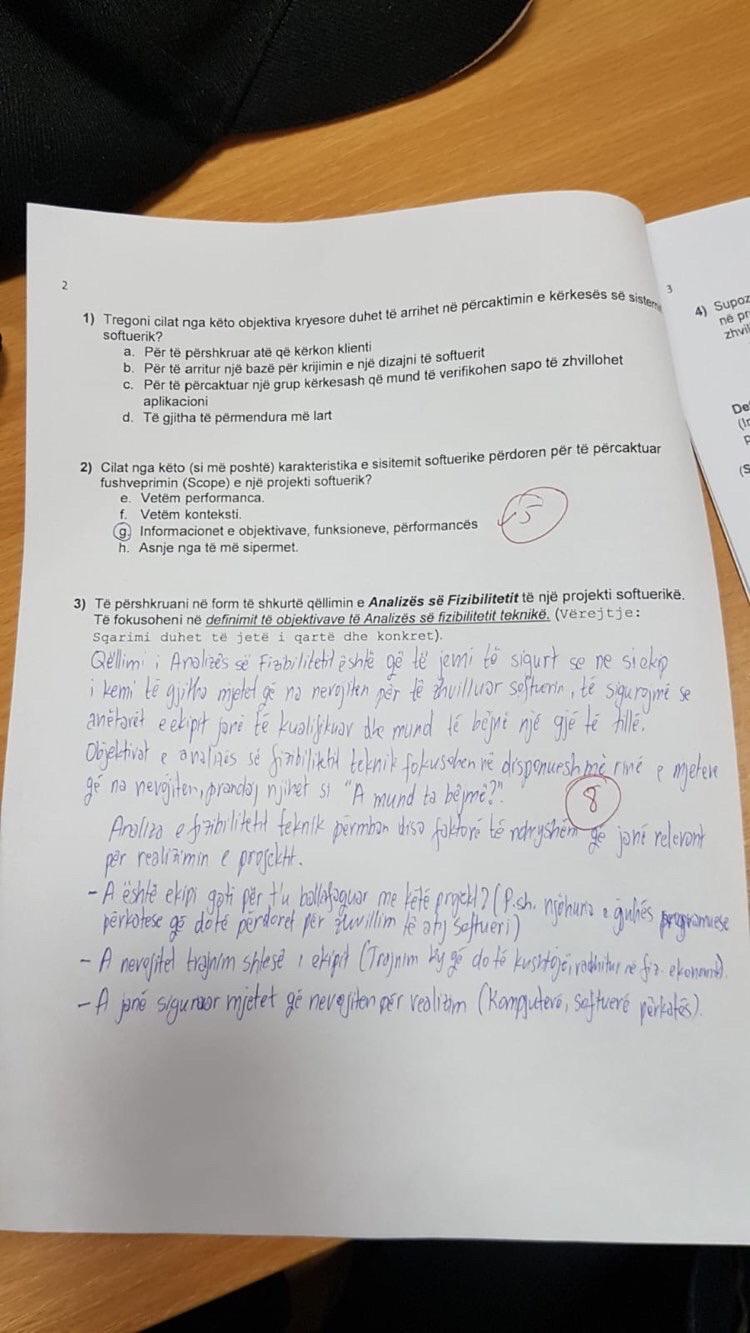 2
1) Tregoni cilat nga këto objektiva kryesore duhet të arrihet në përcaktimin e kërkesës së sistem
softuerik?
a. Për të përshkruar atë që kërkon klienti
b. Për të arritur një bazë për krijimin e një dizajni të softuerit
c. Për të përcaktuar një grup kërkesash që mund të verifikohen sapo të zhvillohet
aplikacioni
d. Të gjitha të përmendura më lart
2) Cilat nga këto (si më poshtë) karakteristika e sisitemit softuerike përdoren për të përcaktuar
fushveprimin (Scope) e një projekti softuerik?
e. Vetëm performanca.
f. Vetëm konteksti.
g. Informacionet e objektivave, funksioneve, përformancës
h. Asnje nga të më sipermet.
5
3) Të përshkruani në form të shkurtë qëllimin e Analizës së Fizibilitetit të një projekti softuerikë.
Të fokusoheni në definimit të objektivave të Analizës së fizibilitetit teknikë. (Vërejtje:
Sqarimi duhet të jetë i qartë dhe konkret).
Qëllimi i Analizës së Fizibilitetit është që të jemi të sigurt se ne si ekip
i kemi të gjitha mjetet që na nevojiten për të zhvilluar softuerin, të sigurojmë se
anëtarët e ekipit janë të kualifikuar dhe mund të bëjnë një gjë të tillë.
Objektivat e analizës së fizibilitetit teknik fokusohen në disponueshmërinë e mjeteve
që na nevojiten, prandaj njihet si "A mund ta bëjmë?".
8
Analiza e fizibilitetit teknik përmban disa faktorë të ndryshëm që janë relevant
për realizimin e projektit.
- A është ekipi gati për t'u ballafaquar me këtë projekt? (P.sh. njohuria e gjuhës programuese
përkatëse që do të përdoret për zhvillim të atij softueri)
- A nevojitet trajnim shtesë i ekipit (Trajnim ky që do të kushtojë, radhitur në fiz. ekonomik).
- A janë siguruar mjetet që nevojiten për realizim (Kompjuterë, Softuerë përkatës).
3
4) Supoz
në pr
zhvil
De
(In
P
(S